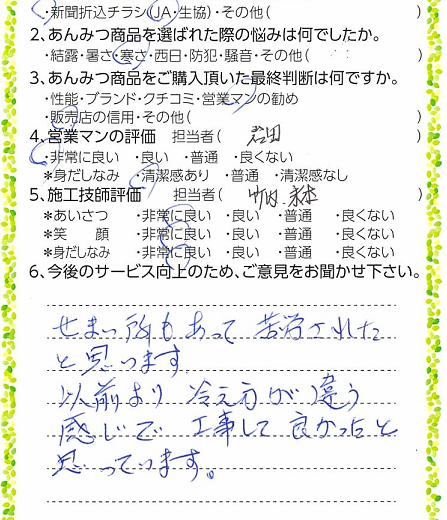 ・新聞折込チラシ(JA・生協)・その他( )
2、あんみつ商品を選ばれた際の悩みは何でしたか。
・結露・暑さ・寒さ・西日・防犯・騒音・その他( )
3、あんみつ商品をご購入頂いた最終判断は何ですか。
・性能・ブランド・クチコミ・営業マンの勧め
・販売店の信用・その他( )
4、営業マンの評価 担当者( 岩田 )
・非常に良い ・良い ・普通 ・良くない
*身だしなみ ・清潔感あり ・普通 ・清潔感なし
5、施工技師評価 担当者( )
*あいさつ ・非常に良い ・良い ・普通 ・良くない
*笑 顔 ・非常に良い ・良い ・普通 ・良くない
*身だしなみ ・非常に良い ・良い ・普通 ・良くない
6、今後のサービス向上のため、ご意見をお聞かせ下さい。
せまい所もあって 苦労された
と思います
以前より 冷え方が 違う
感じで 工事して 良かったと
思っています。